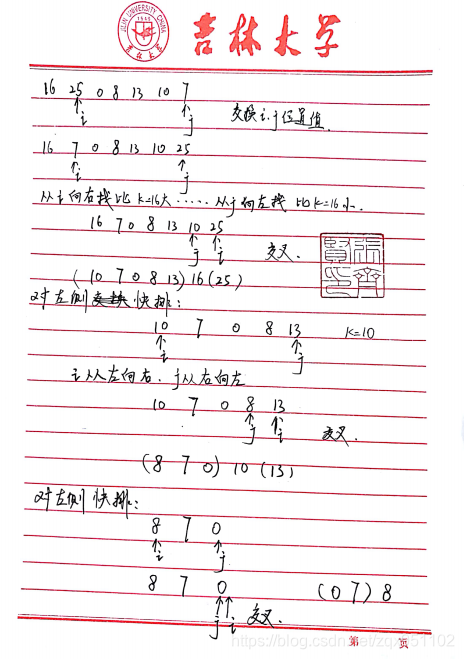 JILIN UNIVERSITY CHINA
1946
吉林大学
16 25 0 8 13 10 7
↑i ↑j 交换i.j位置值.
16 7 0 8 13 10 25
↑i ↑j
从i向右找比k=16大······从j向左找比k=16小.
16 7 0 8 13 10 25
↑j ↑i 交叉.
(10 7 0 8 13) 16 (25)
对左侧快排:
10 7 0 8 13 k=10
↑i ↑j
i从左向右.j从右向左
10 7 0 8 13
↑j ↑i 交叉.
(8 7 0) 10 (13)
对左侧快排:
8 7 0
↑i ↑j
8 7 0 (0 7) 8
↑j ↑i 交叉.
第 页